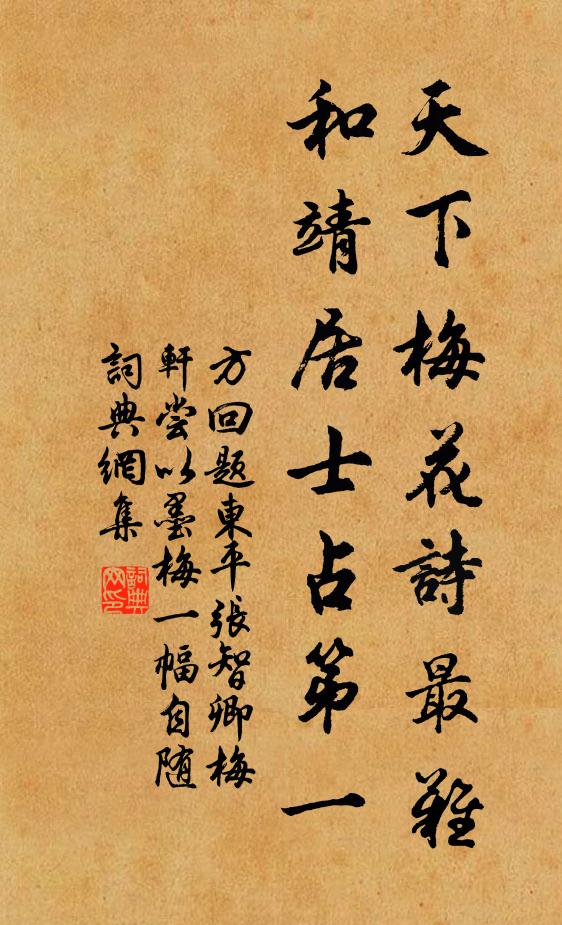 天下梅花詩最難
和靖居士占第一
方回題東平張智卿梅
軒嘗以墨梅一幅自随
詞典網集
詞典
网印